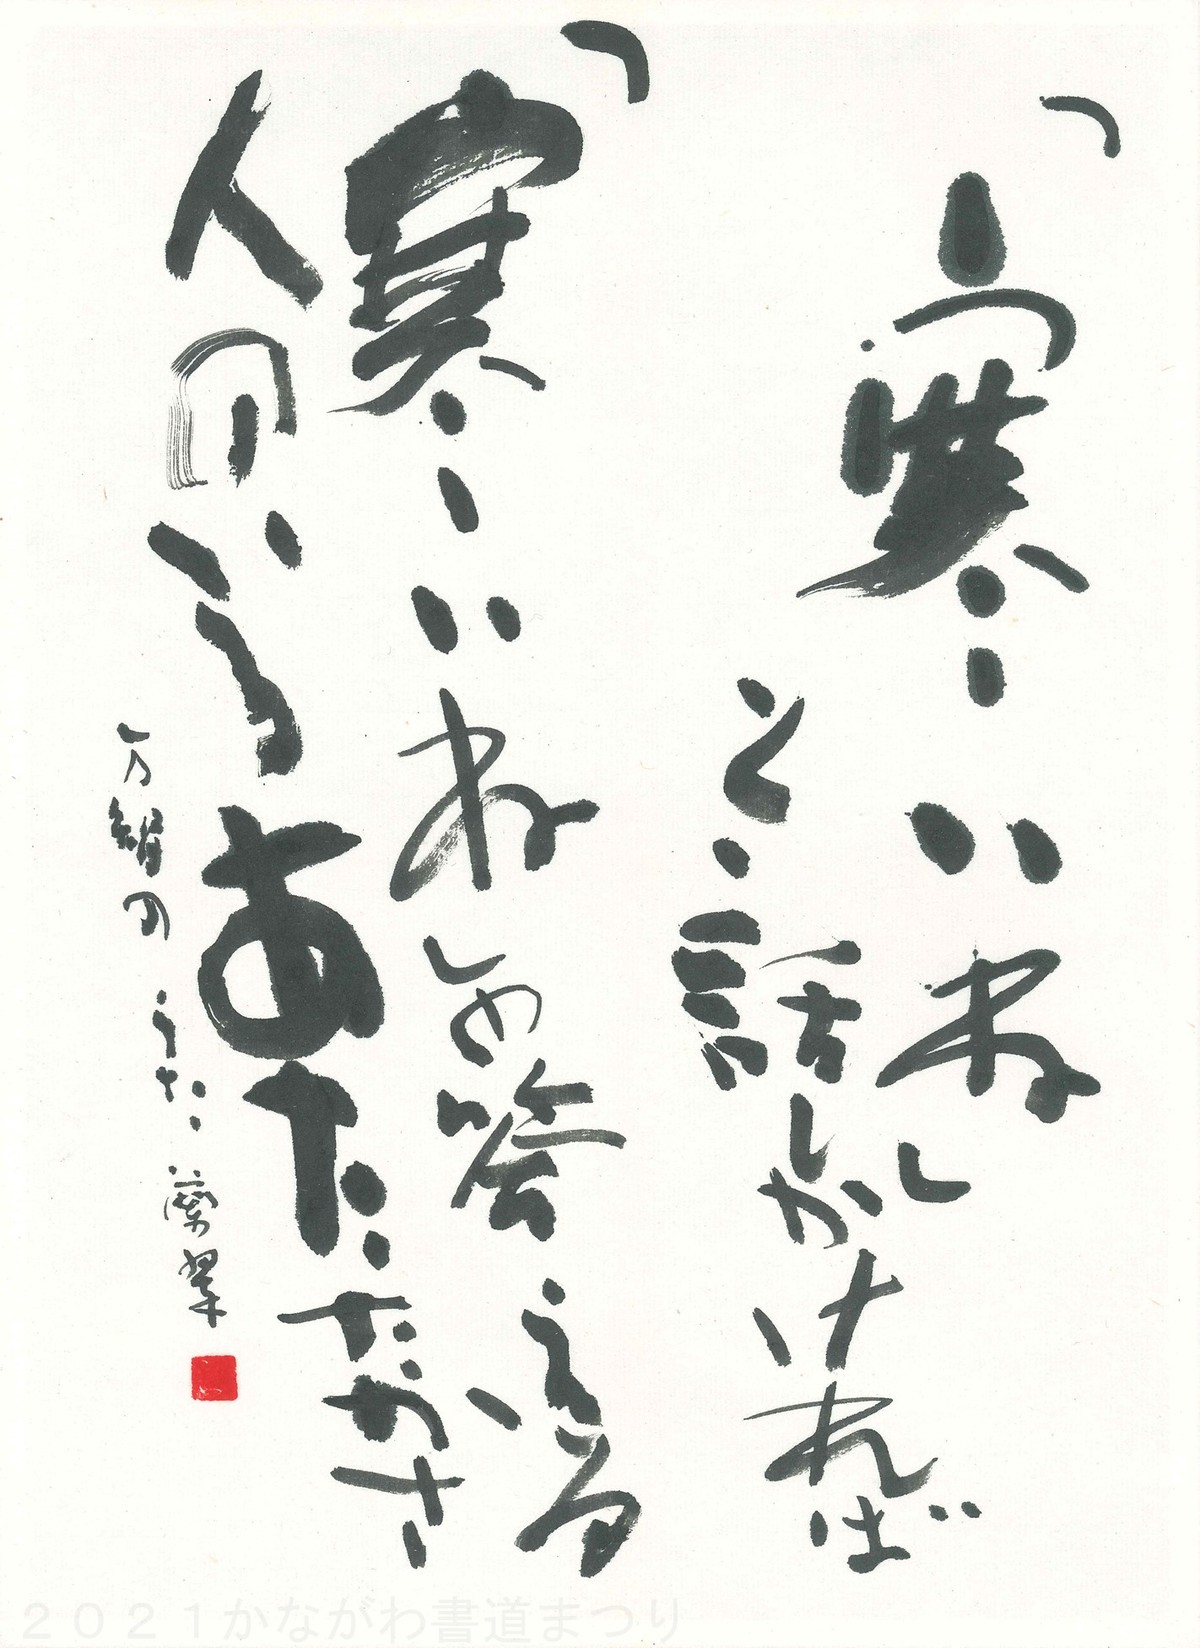 「寒いね」
と話しかければ
「寒いね」と答える
人のいるあたたかさ
万智のうた 蘭翠
２０２１かながわ書道まつり